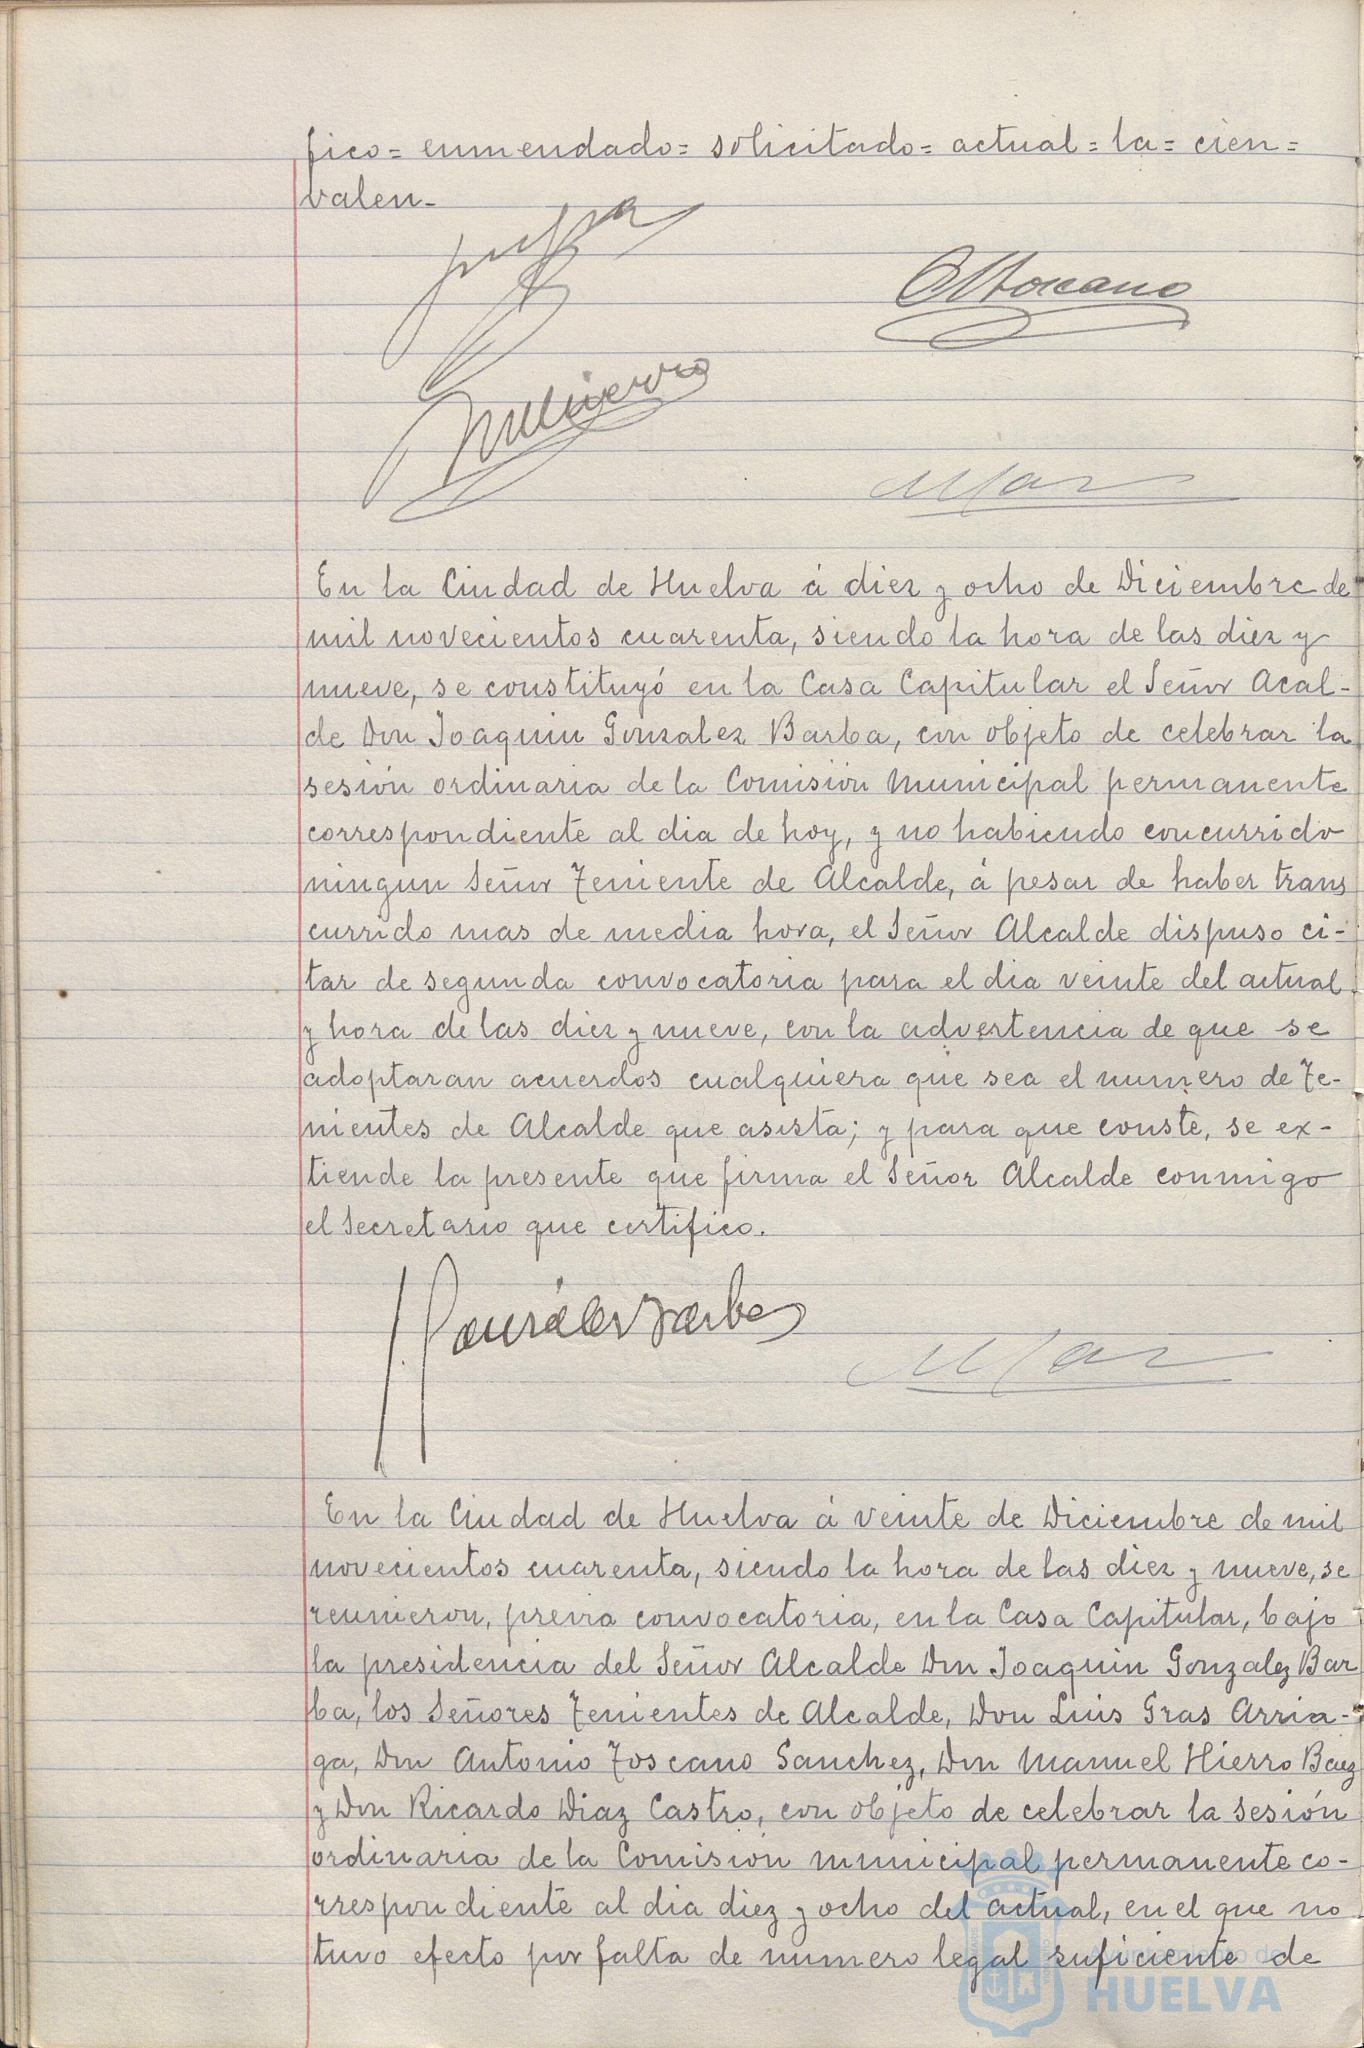 fico= enmendado= solicitado= actual= la= cien=
valen-
En la Ciudad de Huelva á diez y ocho de Diciembre de
mil novecientos cuarenta, siendo la hora de las diez y
nueve, se constituyó en la Casa Capitular el Señor Acal-
de Don Joaquin Gonzalez Barba, con objeto de celebrar la
sesión ordinaria de la Comisión Municipal permanente
correspondiente al dia de hoy, y no habiendo concurrido
ningun Señor Teniente de Alcalde, á pesar de haber trans
currido mas de media hora, el Señor Alcalde dispuso ci-
tar de segunda convocatoria para el dia veinte del actual
y hora de las diez y nueve, con la advertencia de que se
adoptaran acuerdos cualquiera que sea el numero de Te-
nientes de Alcalde que asista; y para que conste, se ex-
tiende la presente que firma el Señor Alcalde conmigo
el Secretario que certifico.
J. González Barba
En la Ciudad de Huelva á veinte de Diciembre de mil
novecientos cuarenta, siendo la hora de las diez y nueve, se
reunieron, previa convocatoria, en la Casa Capitular, bajo
la presidencia del Señor Alcalde Don Joaquin Gonzalez Bar
ba, los Señores Tenientes de Alcalde, Don Luis Gras Arria-
ga, Don Antonio Toscano Sanchez, Don Manuel Hierro Baez
y Don Ricardo Diaz Castro, con objeto de celebrar la sesión
ordinaria de la Comisión municipal permanente co-
rrespondiente al dia diez y ocho del actual, en el que no
tuvo efecto por falta de numero legal suficiente de
Ayuntamiento de
HUELVA